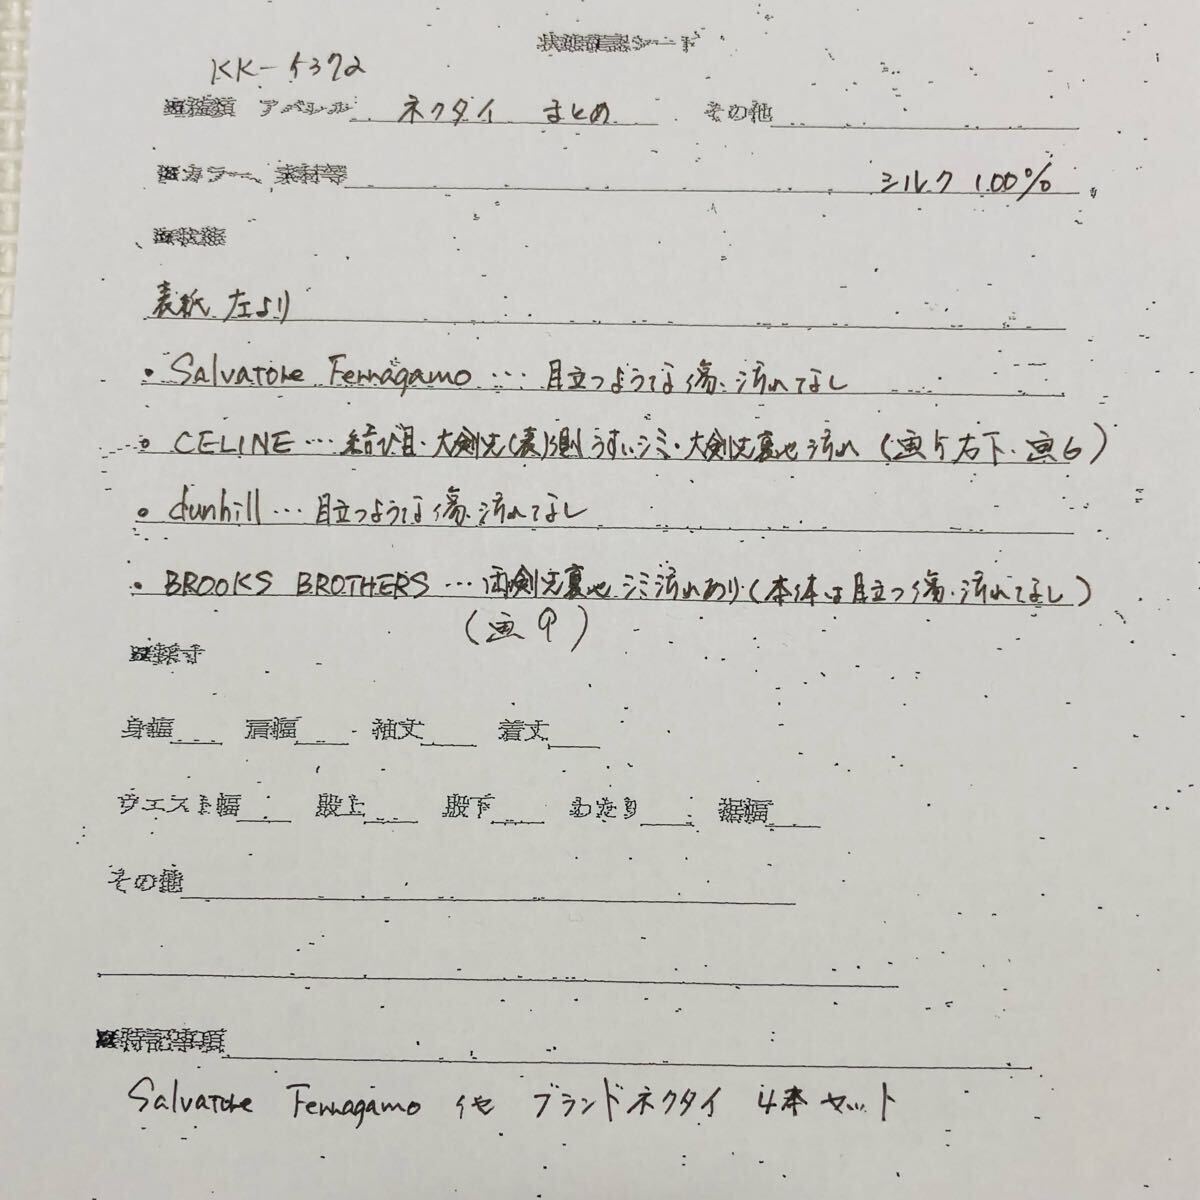 状態確認シート
KK-5372
■種類 アパレル ネクタイ まとめ その他
■カラー、素材等 シルク 100%
■状態
表紙 左より
・Salvatore Ferragamo … 目立つような傷、汚れなし
・CELINE … 結び目・大剣先(表)側 うすいシミ・大剣先裏地 汚れ (画5右下・画6)
・dunhill … 目立つような傷、汚れなし
・BROOKS BROTHERS … 両剣先裏地 シミ汚れあり(本体は目立つ傷、汚れなし)
(画9)
■採寸
身幅 肩幅 袖丈 着丈
ウエスト幅 股上 股下 わたり 裾幅
その他
■特記事項
Salvatore Ferragamo 他 ブランドネクタイ 4本セット